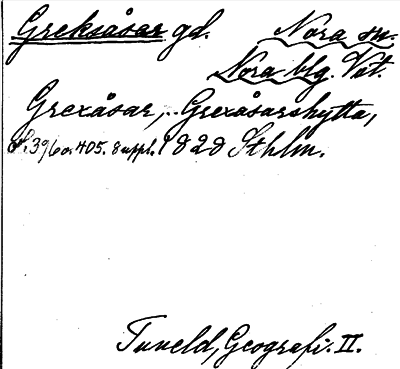 Greksåsar gd. Nora sn.
Nora blg. Vstm.
Grexåsar, Grexåsarshytta,
S. 396 o. 405. 8 uppl. 1828 Sthlm.
Tuneld, Geografi. II.